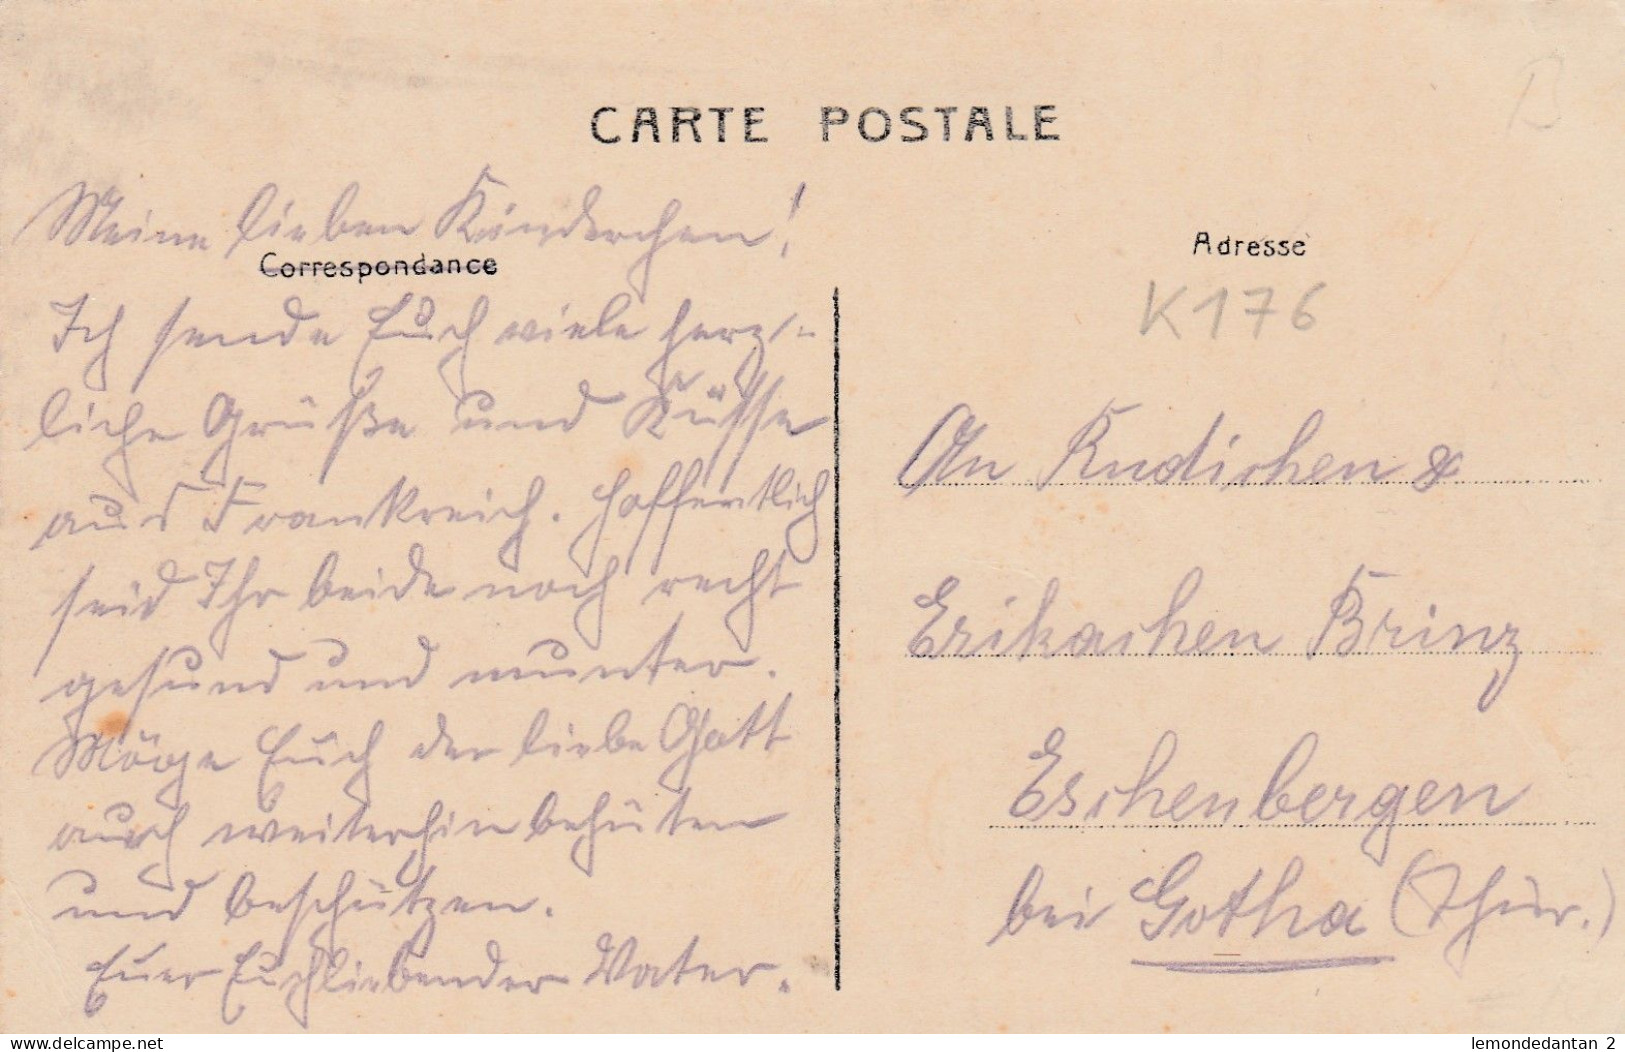 CARTE POSTALE
Meine lieben Kinderchen!
Correspondance
Ich sende Euch viele herz-
liche Grüße und Küsse
aus Frankreich. Hoffentlich
seid Ihr beide noch recht
gesund und munter.
Möge Euch der liebe Gott
auch weiterhin behüten
und beschützen.
Euer Euchliebender Vater.
B
Adresse
K176
An Rudichen &
Erikachen Brinz
Eschenbergen
bei Gotha (Thür.)
delcampe.net
lemondedantan 2